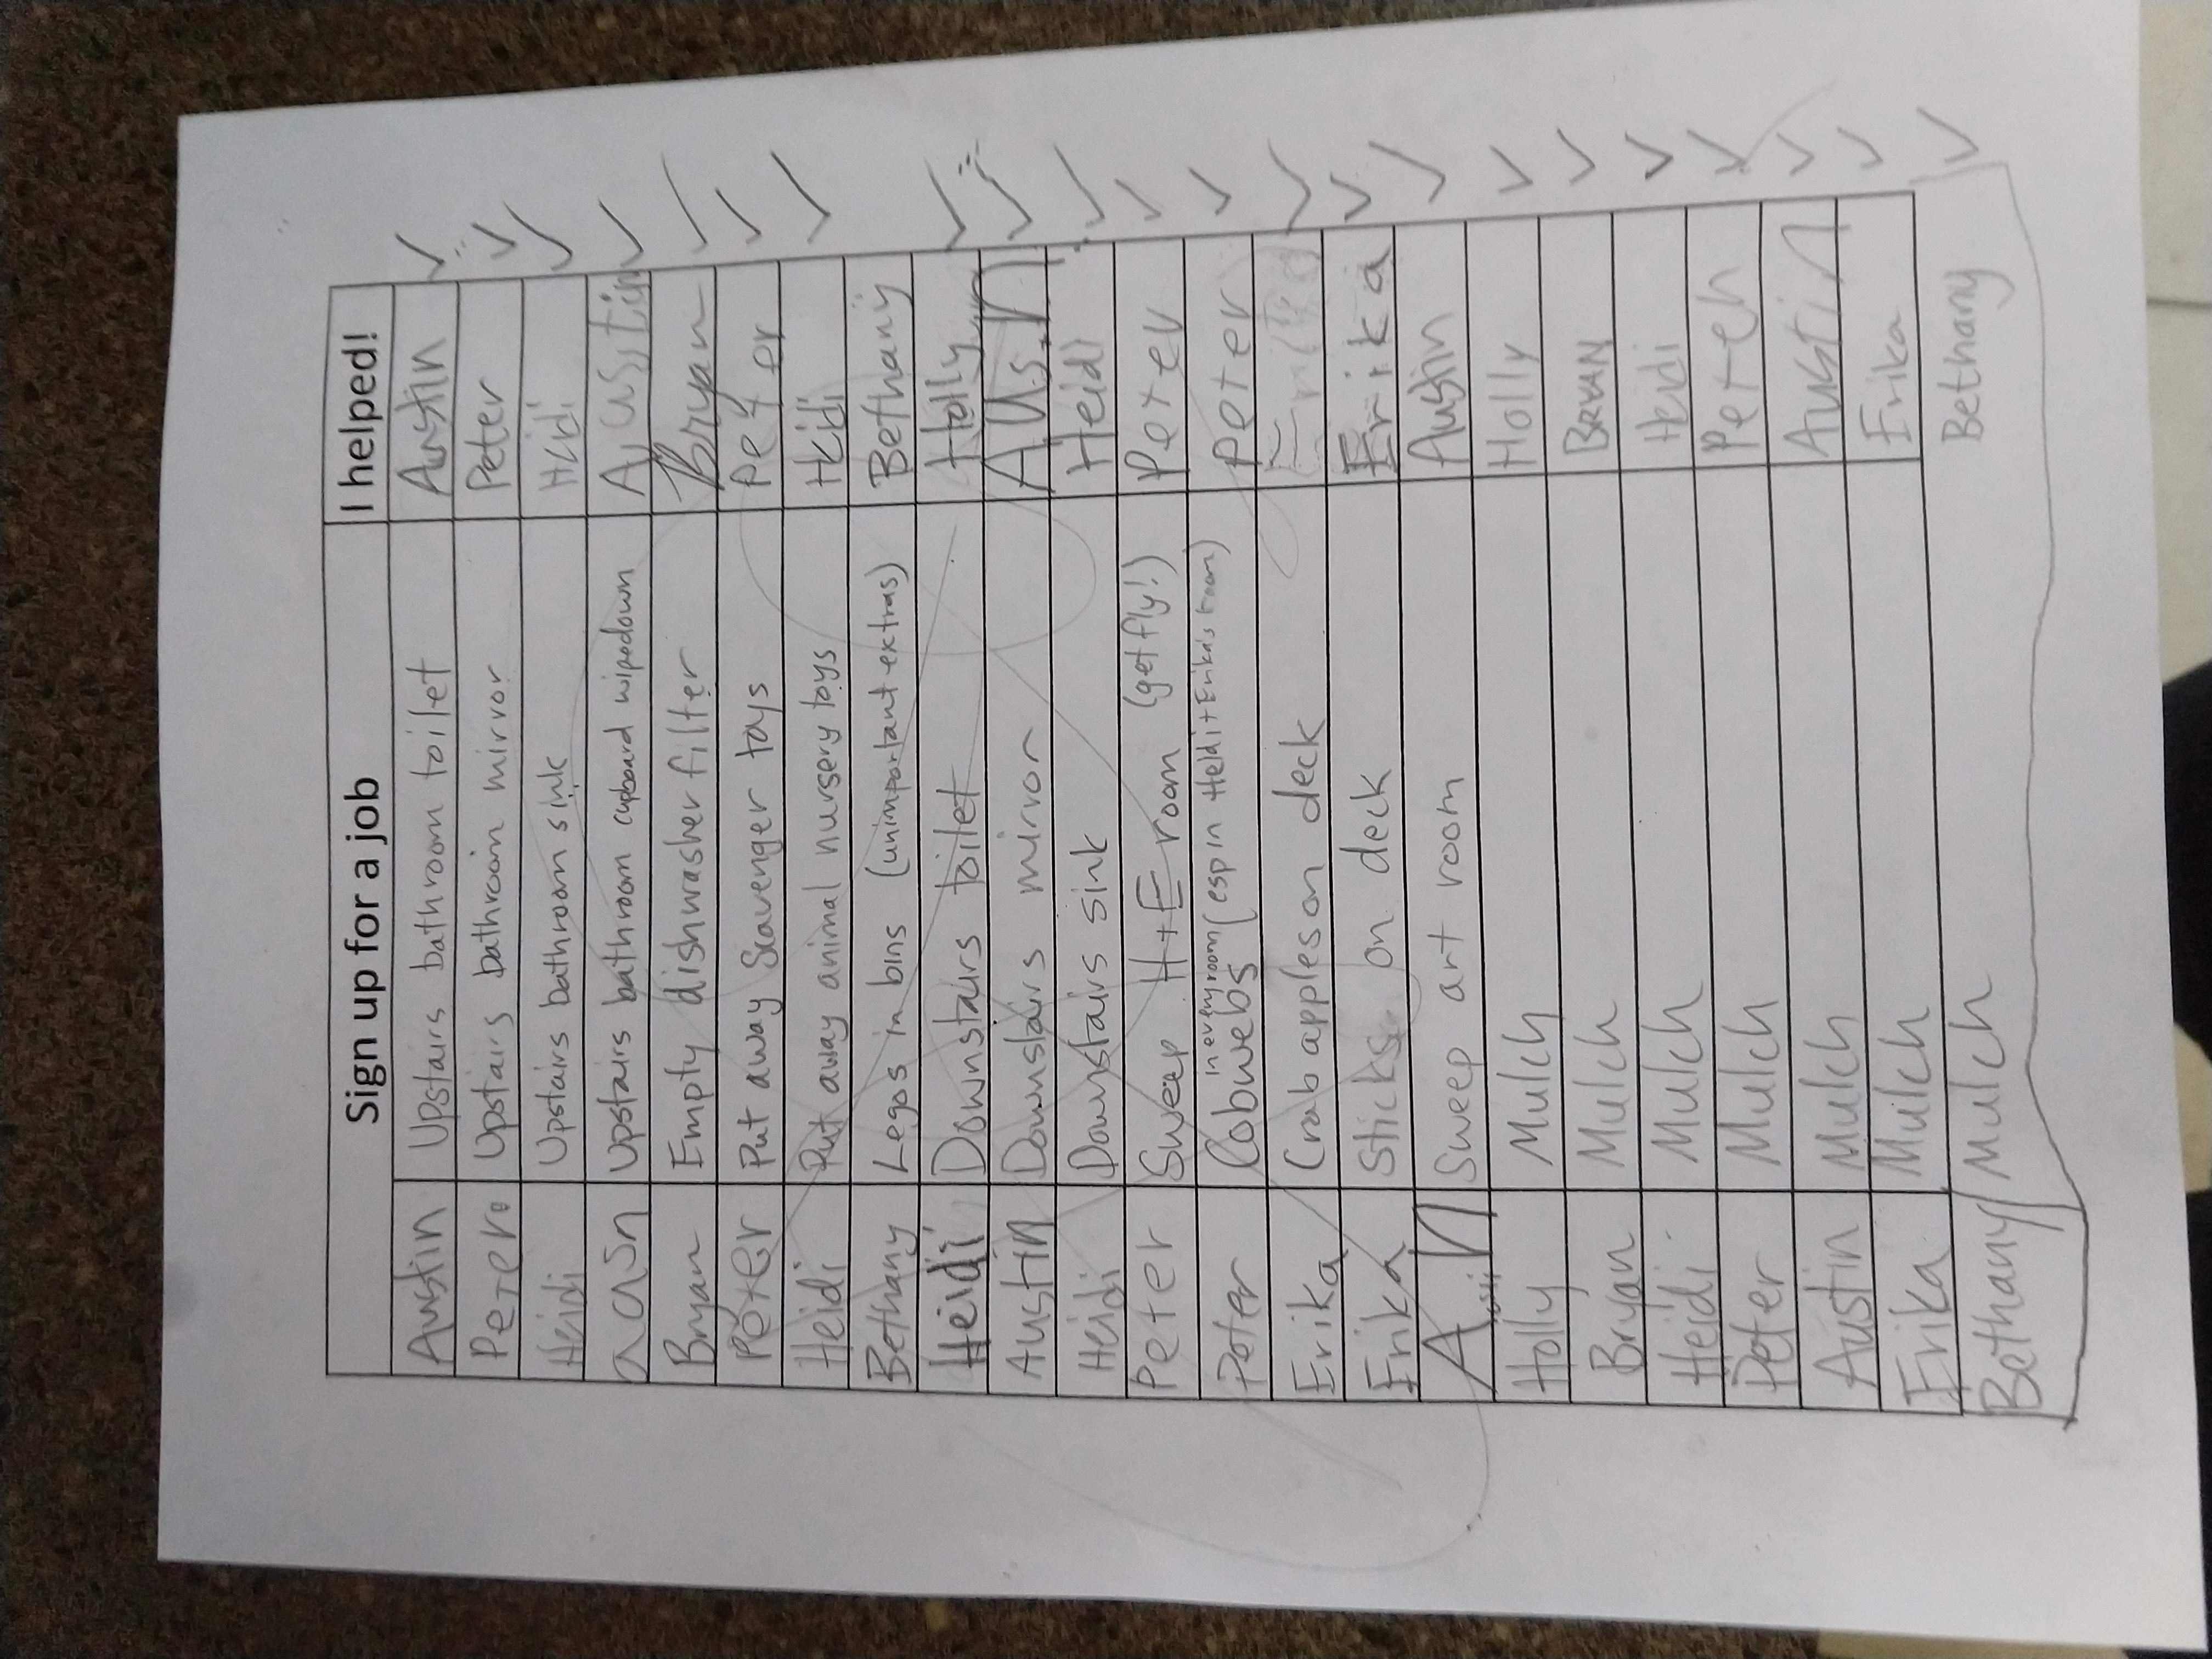 Sign up for a job I helped!
Austin Upstairs bathroom toilet Austin
Peter Upstairs bathroom mirror Peter
Heidi Upstairs bathroom sink Heidi
Upstairs bathroom cupboard wipedown Austin
Bryan Empty dishwasher filter Bryan
Peter Put away Scavenger toys Peter
Heidi Put away animal nursery toys Heidi
Bethany Legos in bins (unimportant extras) Bethany
Heidi Downstairs toilet Holly
Austin Downstairs mirror Austin
Heidi Downstairs sink Heidi
Peter Sweep H+E room (get fly!) Peter
Peter Cobwebs in every room (esp in Heidi+Erika's room) Peter
Erika Crab apples on deck Erika
Erika Sticks on deck Erika
Austin Sweep art room Austin
Holly Mulch Holly
Bryan Mulch Bryan
Heidi Mulch Heidi
Peter Mulch Peter
Austin Mulch Austin
Erika Mulch Erika
Bethany Mulch Bethany